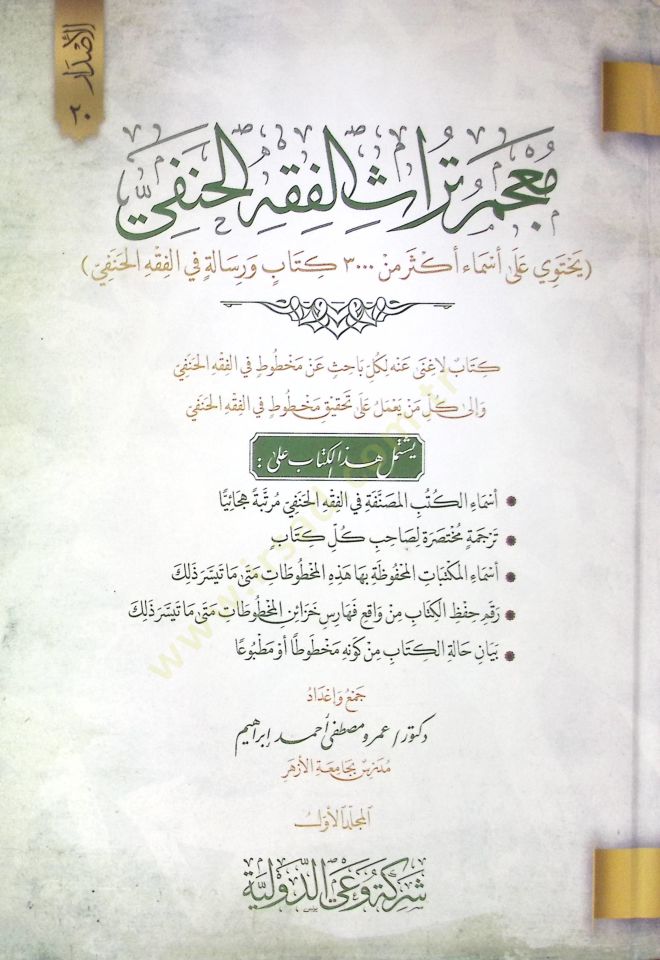 الأصدار ٢٠
مُعْجَمُ تُرَاثِ الفِقْهِ الحَنَفِيِّ
(يَحْتَوِي عَلَى أَسْمَاء أَكْثَر مِنْ ٣٠٠٠ كِتَابٍ وَرِسَالةٍ في الفِقْهِ الحَنَفِيّ)
كِتَابٌ لاَ غِنَى عَنه لِكُلِّ بَاحِثٍ عَنْ مَخْطُوطٍ في الفِقْهِ الحَنَفي
وَالى كُلِّ مَن يَعْمَلُ عَلى تَحْقِيقِ مَخْطُوطٍ في الفِقْهِ الحَنَفي
يشتمل هذا الكتاب على :
• أسْمَاءِ الكُتُبِ المصَنَّفَةِ في الفِقْهِ الحَنَفِيّ مُرتَّبةً هِجَائِيًّا
• تَرْجَمَةٍ مُخْتَصَرَةٍ لِصَاحِبِ كُلِّ كِتَابٍ
• أسْمَاءِ المكْتبَاتِ المحْفُوظَةِ بِهَا هَذِهِ المخْطُوطَاتِ مَتَى مَا تيَسَّرَ ذَلِكَ
• رَقمِ حِفْظِ الكِتَابِ مِنْ وَاقِعِ فَهَارِسِ خَزَائِنِ المخْطُوطَاتِ مَتَى مَا تيَسَّرَ ذَلِكَ
• بَيَانِ حَالَةِ الكِتَابِ مِنْ كَونِهِ مَخْطُوطًا أوْ مَطْبُوعًا
جَمْعُ وَإعْدَادُ
دكتور/ عمرو مصطفى أحمد إبراهيم
مُدَرِّسٌ بجَامِعَةِ الأزهَرِ
المجلد الأوّل
شركة وَعْي الدَّوليَّة
www.irsad.com.tr